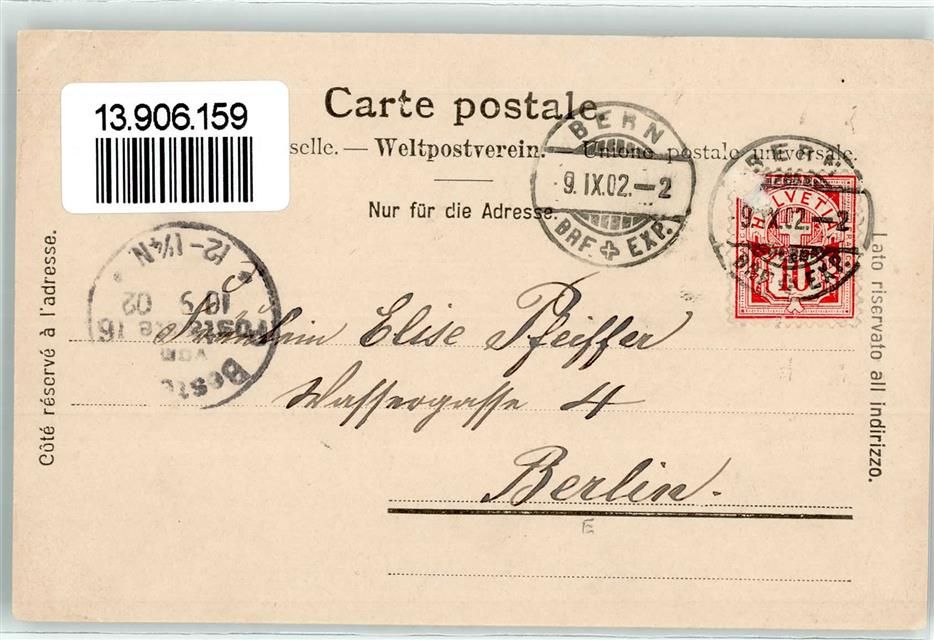 13.906.159
Carte postale
selle. — Weltpostverein. — Unione postale universale.
Nur für die Adresse.
BERN
9.IX.02.–2
BRF EXP.
BERN
9.IX.02.–2
BRF EXP.
HELVETIA
10
Côté réservé à l'adresse.
Lato riservato all indirizzo.
Bestellt
vom
Postamte 16
10 9 02
12–1¼N
Fräulein Elise Pfeiffer
Wassergasse 4
Berlin.
E